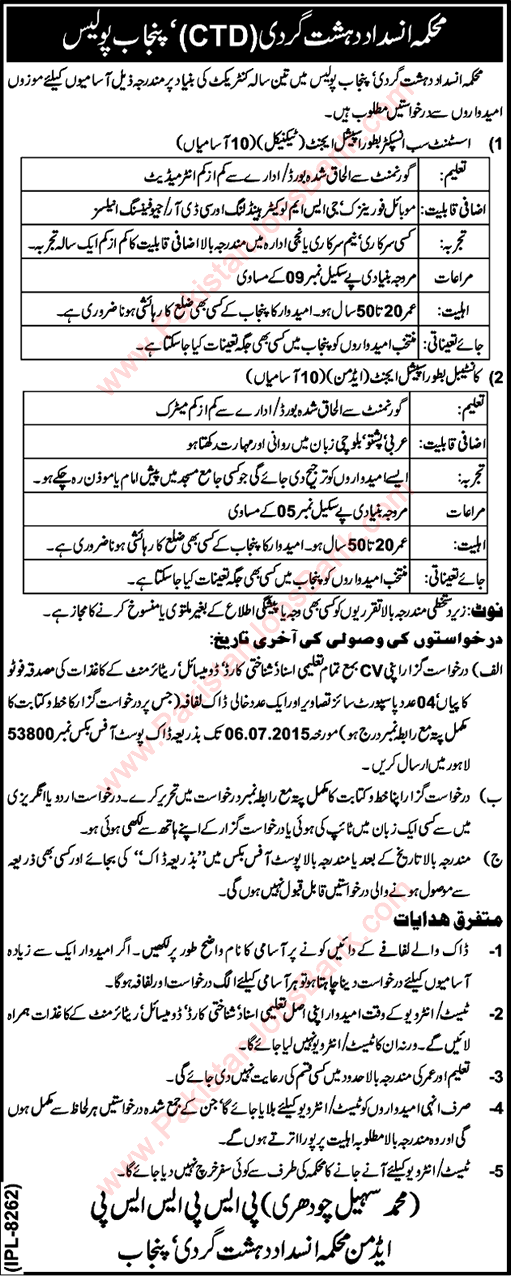 محکمہ انسداد دہشت گردی (CTD)، پنجاب پولیس
محکمہ انسداد دہشت گردی، پنجاب پولیس میں تین سالہ کنٹریکٹ کی بنیاد پر مندرجہ ذیل آسامیوں کیلئے موزوں
امیدواروں سے درخواستیں مطلوب ہیں۔
1) اسسٹنٹ سب انسپکٹر بطور اسپیشل ایجنٹ (ٹیکنیکل) (10 آسامیاں)
تعلیم: گورنمنٹ سے الحاق شدہ بورڈ/ ادارے سے کم از کم انٹرمیڈیٹ
اضافی قابلیت: موبائل فورینزک، جی ایس ایم لوکیٹر ہینڈلنگ اور سی ڈی آر/ جیوفینسنگ انیلسز
تجربہ: کسی سرکاری/ نیم سرکاری یا نجی ادارہ میں مندرجہ بالا اضافی قابلیت کا کم از کم ایک سالہ تجربہ۔
مراعات مروجہ بنیادی پے سکیل نمبر 09 کے مساوی
اہلیت: عمر 20 تا 50 سال ہو۔ امیدوار کا پنجاب کے کسی بھی ضلع کا رہائشی ہونا ضروری ہے۔
جائے تعیناتی: منتخب امیدواروں کو پنجاب میں کسی بھی جگہ تعینات کیا جا سکتا ہے۔
2) کانسٹیبل بطور اسپیشل ایجنٹ (ایڈمن) (10 آسامیاں)
تعلیم: گورنمنٹ سے الحاق شدہ بورڈ/ ادارے سے کم از کم میٹرک
اضافی قابلیت: عربی/ پشتو/ بلوچی زبان میں روانی اور مہارت رکھتا ہو
تجربہ: ایسے امیدواروں کو ترجیح دی جائے گی جو کسی جامع مسجد میں پیش امام یا موذن رہ چکے ہو۔
مراعات مروجہ بنیادی پے سکیل نمبر 05 کے مساوی
اہلیت: عمر 20 تا 50 سال ہو۔ امیدوار کا پنجاب کے کسی بھی ضلع کا رہائشی ہونا ضروری ہے۔
جائے تعیناتی: منتخب امیدواروں کو پنجاب میں کسی بھی جگہ تعینات کیا جا سکتا ہے۔
نوٹ: زیر دستخطی مندرجہ بالا تقرریوں کو کسی بھی وجہ یا پیشگی اطلاع کے بغیر ملتوی یا منسوخ کرنے کا مجاز ہے۔
درخواستوں کی وصولی کی آخری تاریخ:
الف) درخواست گزار اپنی CV بمع تمام تعلیمی اسناد، شناختی کارڈ، ڈومیسائل، ریٹائرمنٹ کے کاغذات کی مصدقہ فوٹو
کاپیاں 04 عدد پاسپورٹ سائز تصاویر اور ایک عدد خالی ڈاک لفافہ (جس پر درخواست گزار کا خط و کتابت کا
مکمل پتہ مع رابطہ نمبر درج ہو) مورخہ 06.07.2015 تک بذریعہ ڈاک پوسٹ آفس بکس نمبر 53800
لاہور میں ارسال کریں۔
ب) درخواست گزار اپنا خط و کتابت کا مکمل پتہ مع رابطہ نمبر درخواست میں تحریر کرے۔ درخواست اردو یا انگریزی
میں سے کسی ایک زبان میں ٹائپ کی ہوئی یا درخواست گزار کے اپنے ہاتھ سے لکھی ہوئی ہو۔
ج) مندرجہ بالا تاریخ کے بعد یا مندرجہ بالا پوسٹ آفس بکس میں "بذریعہ ڈاک" کی بجائے اور کسی بھی ذریعہ
سے موصول ہونے والی درخواستیں قابل قبول نہیں ہوں گی۔
متفرق ھدایات
1- ڈاک والے لفافے کے دائیں کونے پر آسامی کا نام واضح طور پر لکھیں۔ اگر امیدوار ایک سے زیادہ
آسامیوں کیلئے درخواست دینا چاہتا ہو تو ہر آسامی کیلئے الگ درخواست اور لفافہ ہو گا۔
2- ٹیسٹ/ انٹرویو کے وقت امیدوار اپنی اصل تعلیمی اسناد، شناختی کارڈ، ڈومیسائل، ریٹائرمنٹ کے کاغذات ہمراہ
لائیں گے۔ ورنہ ان کا ٹیسٹ/ انٹرویو نہیں لیا جائے گا۔
3- تعلیم اور عمر کی مندرجہ بالا حدود میں کسی قسم کی رعایت نہیں دی جائے گی۔
4- صرف انہی امیدواروں کو ٹیسٹ/ انٹرویو کیلئے بلایا جائے گا، جن کے جمع شدہ درخواستیں ہر لحاظ سے مکمل ہوں
گی اور وہ مندرجہ بالا مطلوبہ اہلیت پر پورا اترتے ہوں گے۔
5- ٹیسٹ/ انٹرویو کیلئے آنے جانے کا محکمہ کی طرف سے کوئی سفر خرچ نہیں دیا جائے گا۔
(محمد سہیل چودھری) پی ایس پی ایس ایس پی
ایڈمن محکمہ انسداد دہشت گردی، پنجاب
(IPL-8262)
www.PakistanJobsBank.com
www.PakistanJobsBank.com
www.PakistanJobsBank.com